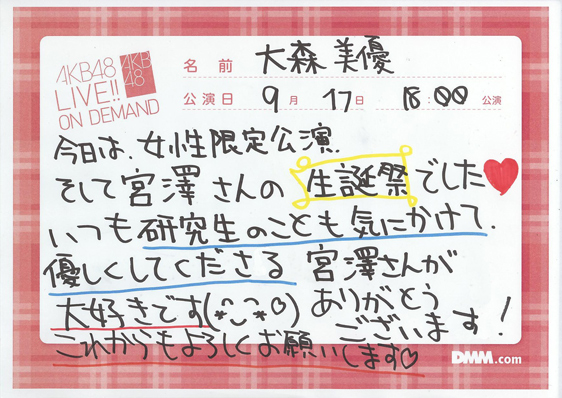 AKB48
LIVE!!
ON DEMAND
AKB
48
名前 大森美優
公演日 9月 17日 18:00 公演
今日は、女性限定公演。
そして宮澤さんの生誕祭でした♥
いつも研究生のことも気にかけて、
優しくしてくださる 宮澤さんが
大好きです(*^‿^*♡) ありがとう
ございます!
これからもよろしくお願いします♡
DMM.com